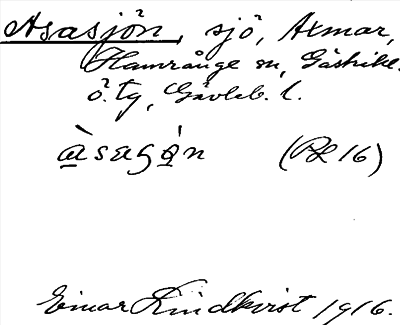 Asasjön, sjö, Axmar,
Hamrånge sn, Gästrikl.
ö. tg, Gävleb. l.
àsasǫ́n (Bl 16)
Einar Lindkvist 1916.